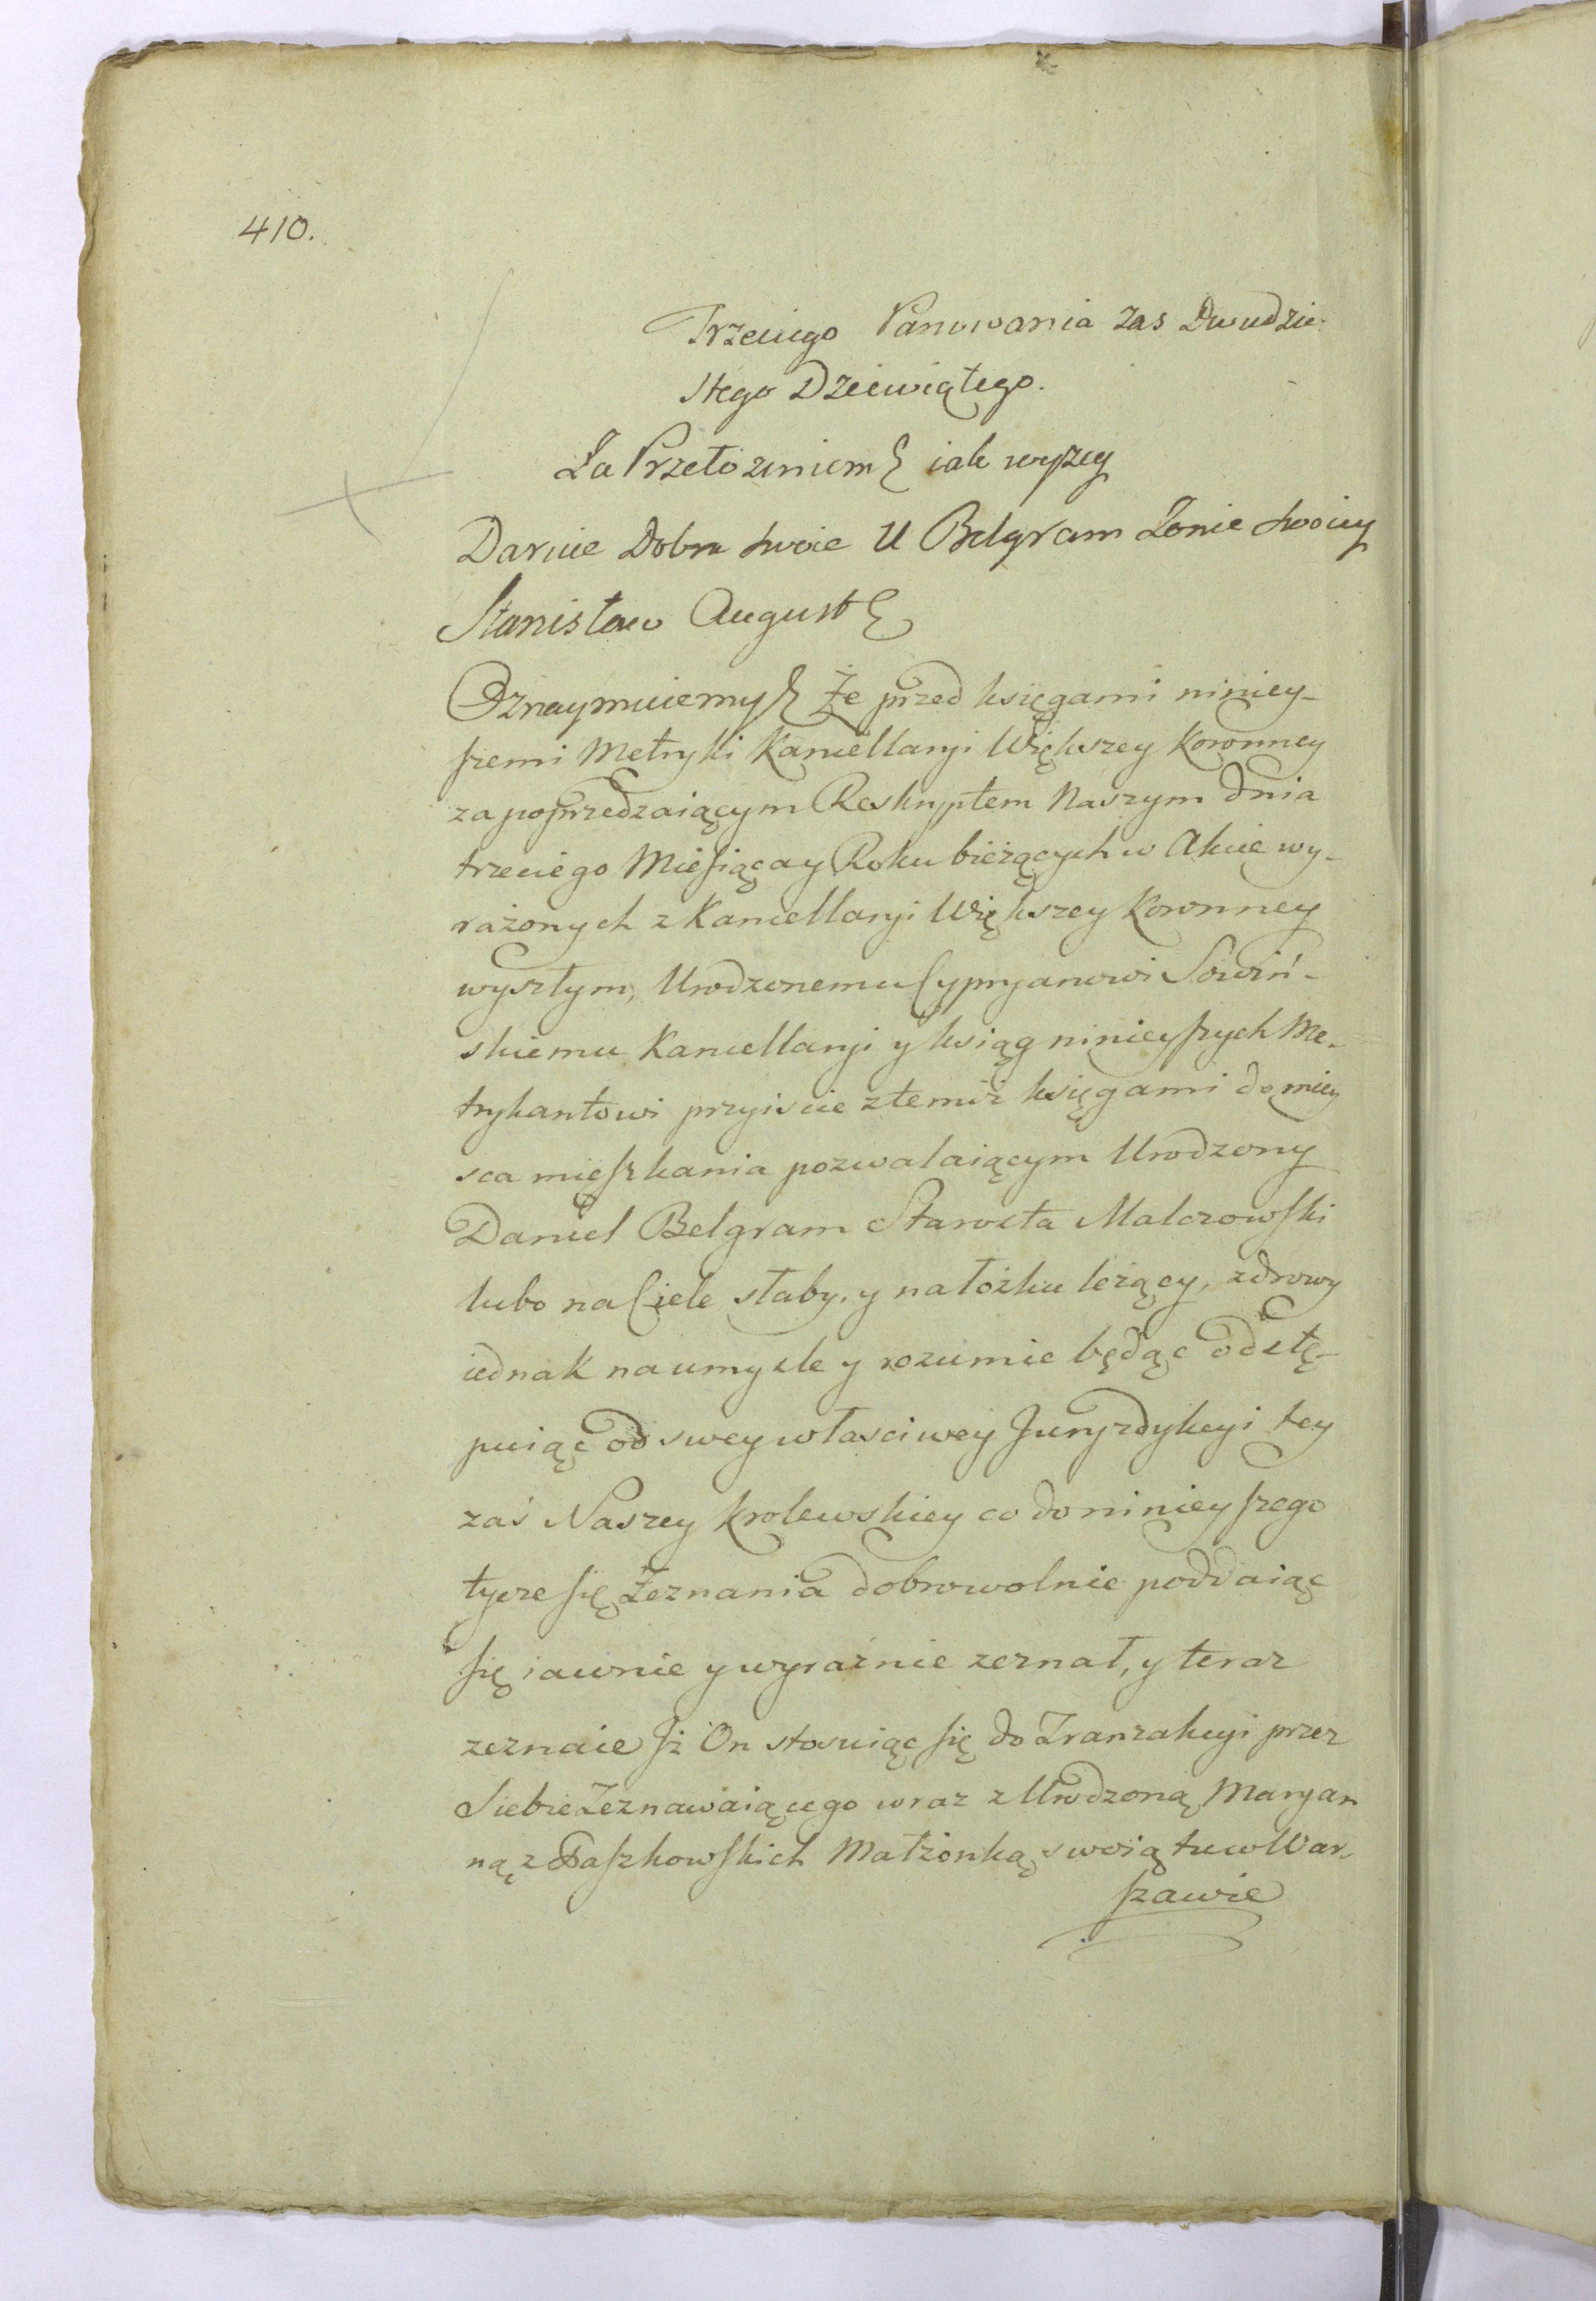 410.
Trzeciego Panowania Zas Dwudzie-
stego Dziewiątego.
Za Przełożeniem & iak wyżey
Daruie Dobra swoie U Belgram Zonie swoiey
Stanisław August &
Oznaymuiemy & Że przed księgami niniey-
szemi Metryki Kancellaryi Większey Koronney
za poprzedzaiącym Reskryptem Naszym dnia
trzeciego Miesiąca y Roku bieżących w Akcie wy-
rażonych z Kancellaryi Większey Koronney
wyszłym, Urodzonemu Cypryanowi Sowiń-
skiemu Kancellaryi y ksiąg ninieyszych Me-
trykantowi przyiscie z temiż księgami do miey
sca mieszkania pozwalaiącym Urodzony
Daniel Belgram Starosta Malczowski
lubo na Ciele słaby, y na łożku leżący, zdrowy
iednak na umyśle y rozumie będąc odstę-
puiąc od swey własciwey Juryzdykcyi tey
zaś Naszey krolewskiey co do ninieyszego
tycze się Zeznania dobrowolnie poddaiąc
się iawnie y wyraźnie zeznał, y teraz
zeznaie Jż On stosuiąc się do Tranzakcyi przez
Siebie Zeznawaiącego wraz z Urodzoną Maryan
ną z Paszkowskich Małżonką swoią tu w War-
szawie